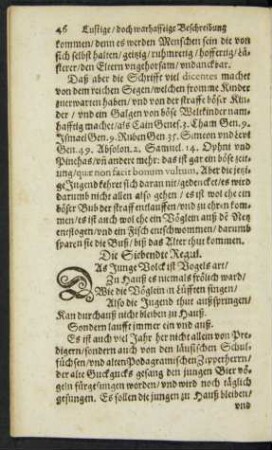 46 Lustige / doch warhafftige Beschreibung
kommen / denn es werden Menschen sein die von
sich selbst halten / geitzig / ruhmretig / hoffertig / Lä-
sterer / den Eltern vngehorsam / vndanckbar.
Daß aber die Schrifft viel dicentes machet
von dem reichen Segen / welchen fromme Kinder
zuerwarten haben / vnd von der straffe böser Kin-
der / vnd ein Galgen von böse Weltkinder nam-
hafftig machet / als Cain Genes. 3. Cham Gen. 9.
Ismael Gen. 9. Ruben Gen 35. Simeon vnd Levi
Gen. 49. Absolon. 2. Samuel. 14. Ophni vnd
Pinehas / vñ andere mehr: das ist gar ein böse zeit-
ung / quæ non facit bonum vultum. Aber die jetzi-
ge Jugend kehret sich daran nit / gedencket / es wird
darumb nicht allen also gehen / es ist wol ehe ein
böser Bub der straff entlauffen / vnd zu ehren kom-
men / es ist auch wol ehe ein Vöglein auß dẽ Netz
entflogen / vnd ein Fisch entschwommen / darumb
sparen sie die Buß / biß das Alter thut kommen.
Die Siebendte Regul.
DAs Junge Volck ist Vogels art /
Zu Hauß es niemals frölich ward /
Wie die Vöglein in Lüfften singen /
Also die Jugend thut außspringen /
Kan durchauß nicht bleiben zu Hauß.
Sondern laufft immer ein vnd auß.
Es ist auch viel Jahr her nicht allein von Pre-
digern / sondern auch von den läusischen Schul-
füchsen / vnd alten Podagramischen Zipperherrn /
der alte Guckgucks gesang den jungen Bier vö-
geln fürgesungen worden / vnd wird noch täglich
gesungen. Es sollen die jungen zu Hauß bleiben /
vnd